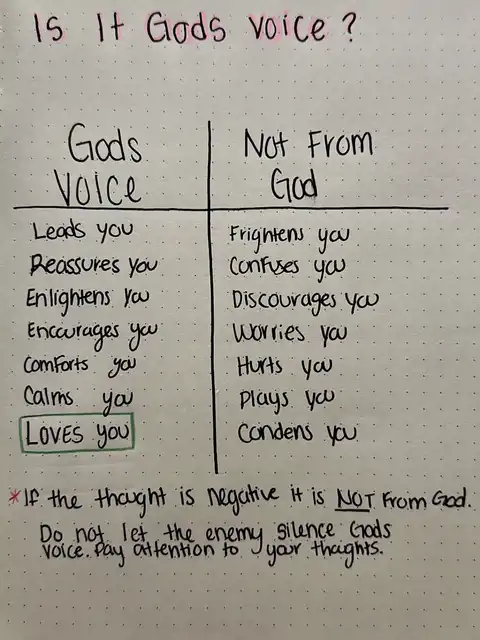 Is It Gods voice?
Gods Voice
Not From God
Leads you
Frightens you
Reassures you
Confuses you
Enlightens you
Discourages you
Encourages you
Worries you
Comforts you
Hurts you
Calms you
Plays you
LOVES you
Condens you
*If the thought is negative it is NOT From God.
Do not let the enemy silence Gods
voice. Pay attention to your thaghts.